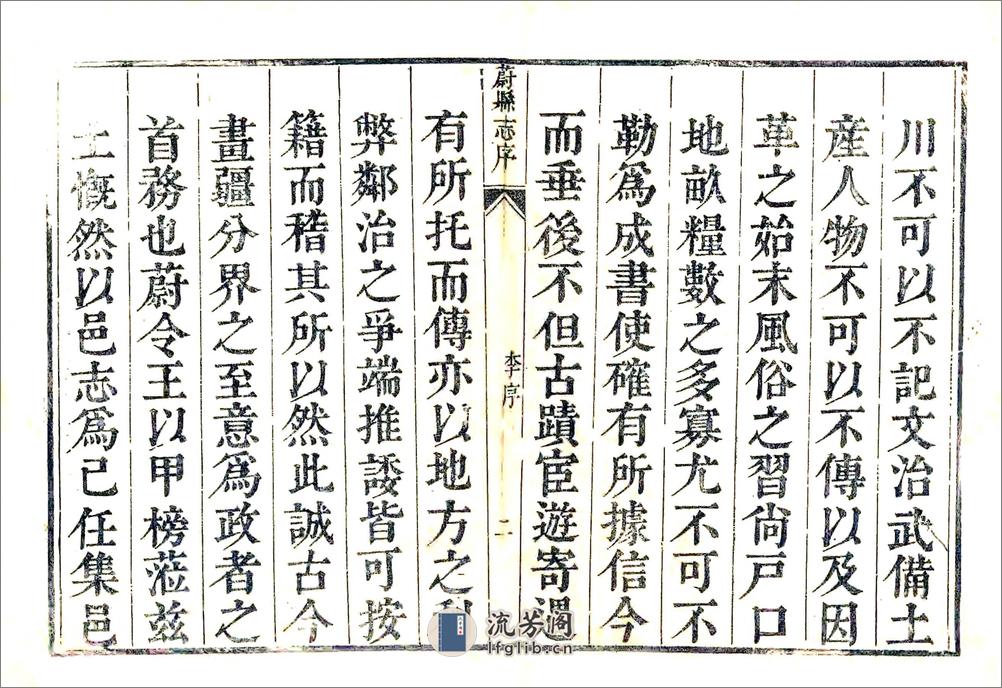 川不可以不記文治武備土
產人物不可以不傳以及因
革之始末風俗之習尙戸口
地畝糧數之多寡尤不可不
勒爲成書使確有所據信今
而垂後不但古蹟宦遊寄遇
蔚縣志序
李序
二
有所托而傳亦以地方之利
弊鄰治之爭端推諉皆可按
籍而稽其所以然此誠古今
畫疆分界之至意爲政者之
首務也蔚令王以甲榜蒞兹
土慨然以邑志爲己任集邑
流芳阁
lfglib.cn